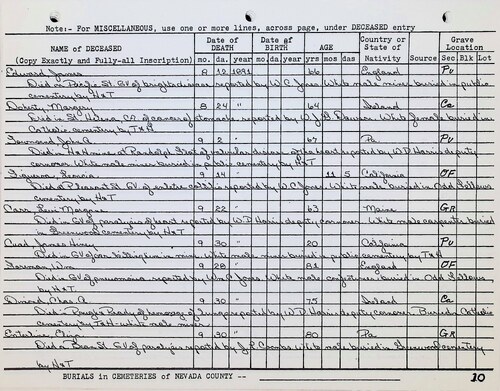 Note:- For MISCELLANEOUS, use one or more lines, across page, under DECEASED entry
NAME of DECEASED Date of DEATH Date of BIRTH AGE Country or State of Nativity Source Grave Location
(Copy Exactly and Fully-all Inscription) mo. da. year mo. da. year yrs mos das Sec Blk Lot
Edward, James 8 12 1891 66 England Pu
Died in Pacific St. GV of brights disease reported by W.C. Jones. White male miner buried in public
cemetery by H&T
Doherty, Margery 8 24 " 64 Ireland Ca
Died in St. Helena, CO of cancer of stomach reported by W.J. H. Dawson White female buried in
Catholic cemetery by T&H
Townsend, John A. 9 2 " 67 Pa Pu
Died in of the heart reported by W.D. Harris deputy
coroner White male miner buried in public cemetery by H&T
9 14 " 11 5 California OF
Died in Pleasant St. GV of reported by W.C. Jones. White male buried in Odd Fellows
cemetery by H&T
Carr, Levi Morgrae 9 22 " 63 Maine GR
Died in GV of paralysis of heart reported by W.D. Harris deputy coroner White male carpenter buried
in Greenwood cemetery by H&T
James Henry 9 30 " 20 California Pu
Died in GV of in mine White male miner buried in public cemetery by T&H
Wm 9 28 " 81 England OF
Died in GV of pneumonia reported by W.C. Jones White male buried in Odd Fellows
by H&T.
Chas A. 9 30 " 75 Ireland Ca
Died in Rough & Ready of of lungs reported by W.D. Harris deputy coroner Buried in Catholic
cemetery by T&H white male miner
9 30 " 80 Pa GR
Died in St. GV of paralysis reported by White male buried in Greenwood cemetery
by H&T
BURIALS in CEMETERIES of NEVADA COUNTY -- 10